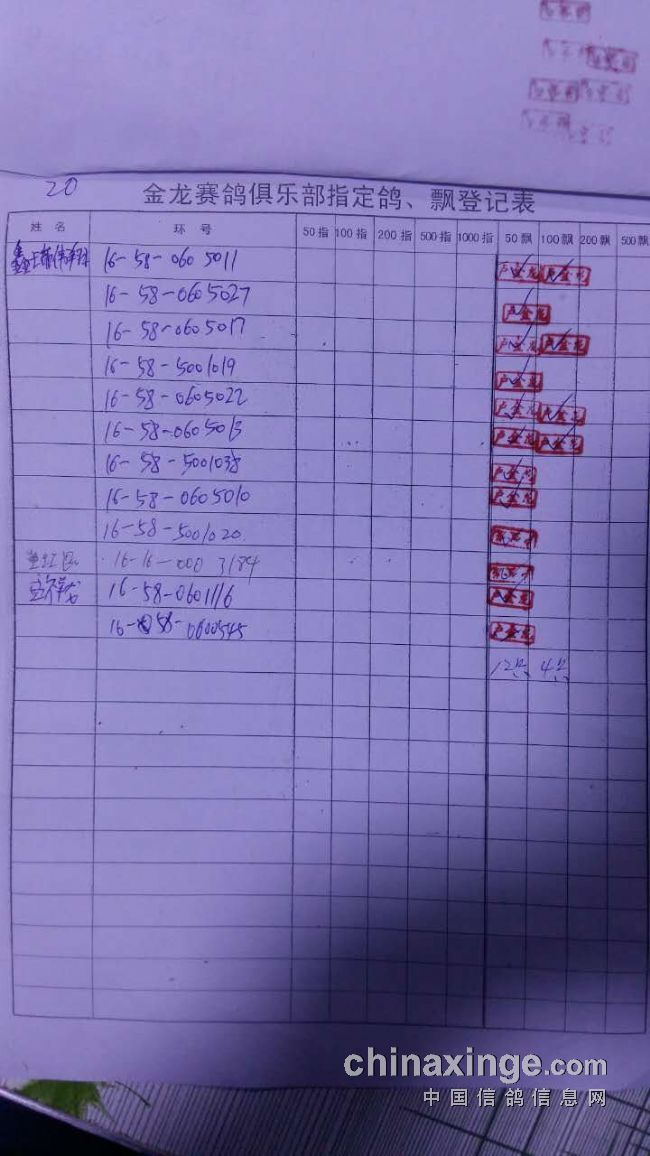 20
金龙赛鸽俱乐部指定鸽、飘登记表
姓 名 环 号 50指 100指 200指 500指 1000指 50飘 100飘 200飘 500飘
16-58-0605011 卢金龙 卢金龙
16-58-0605027 卢金龙
16-58-0605017 卢金龙 卢金龙
16-58-5001019 卢金龙
16-58-0605022 卢金龙 卢金龙
16-58-0605013 卢金龙 卢金龙
16-58-5001038 卢金龙
16-58-0605010 卢金龙
16-58-5001020
16-16-000 3184
16-58-0601116 卢金龙
16-58-0600545 卢金龙
12只 4只
chinaxinge.com
中国信鸽信息网